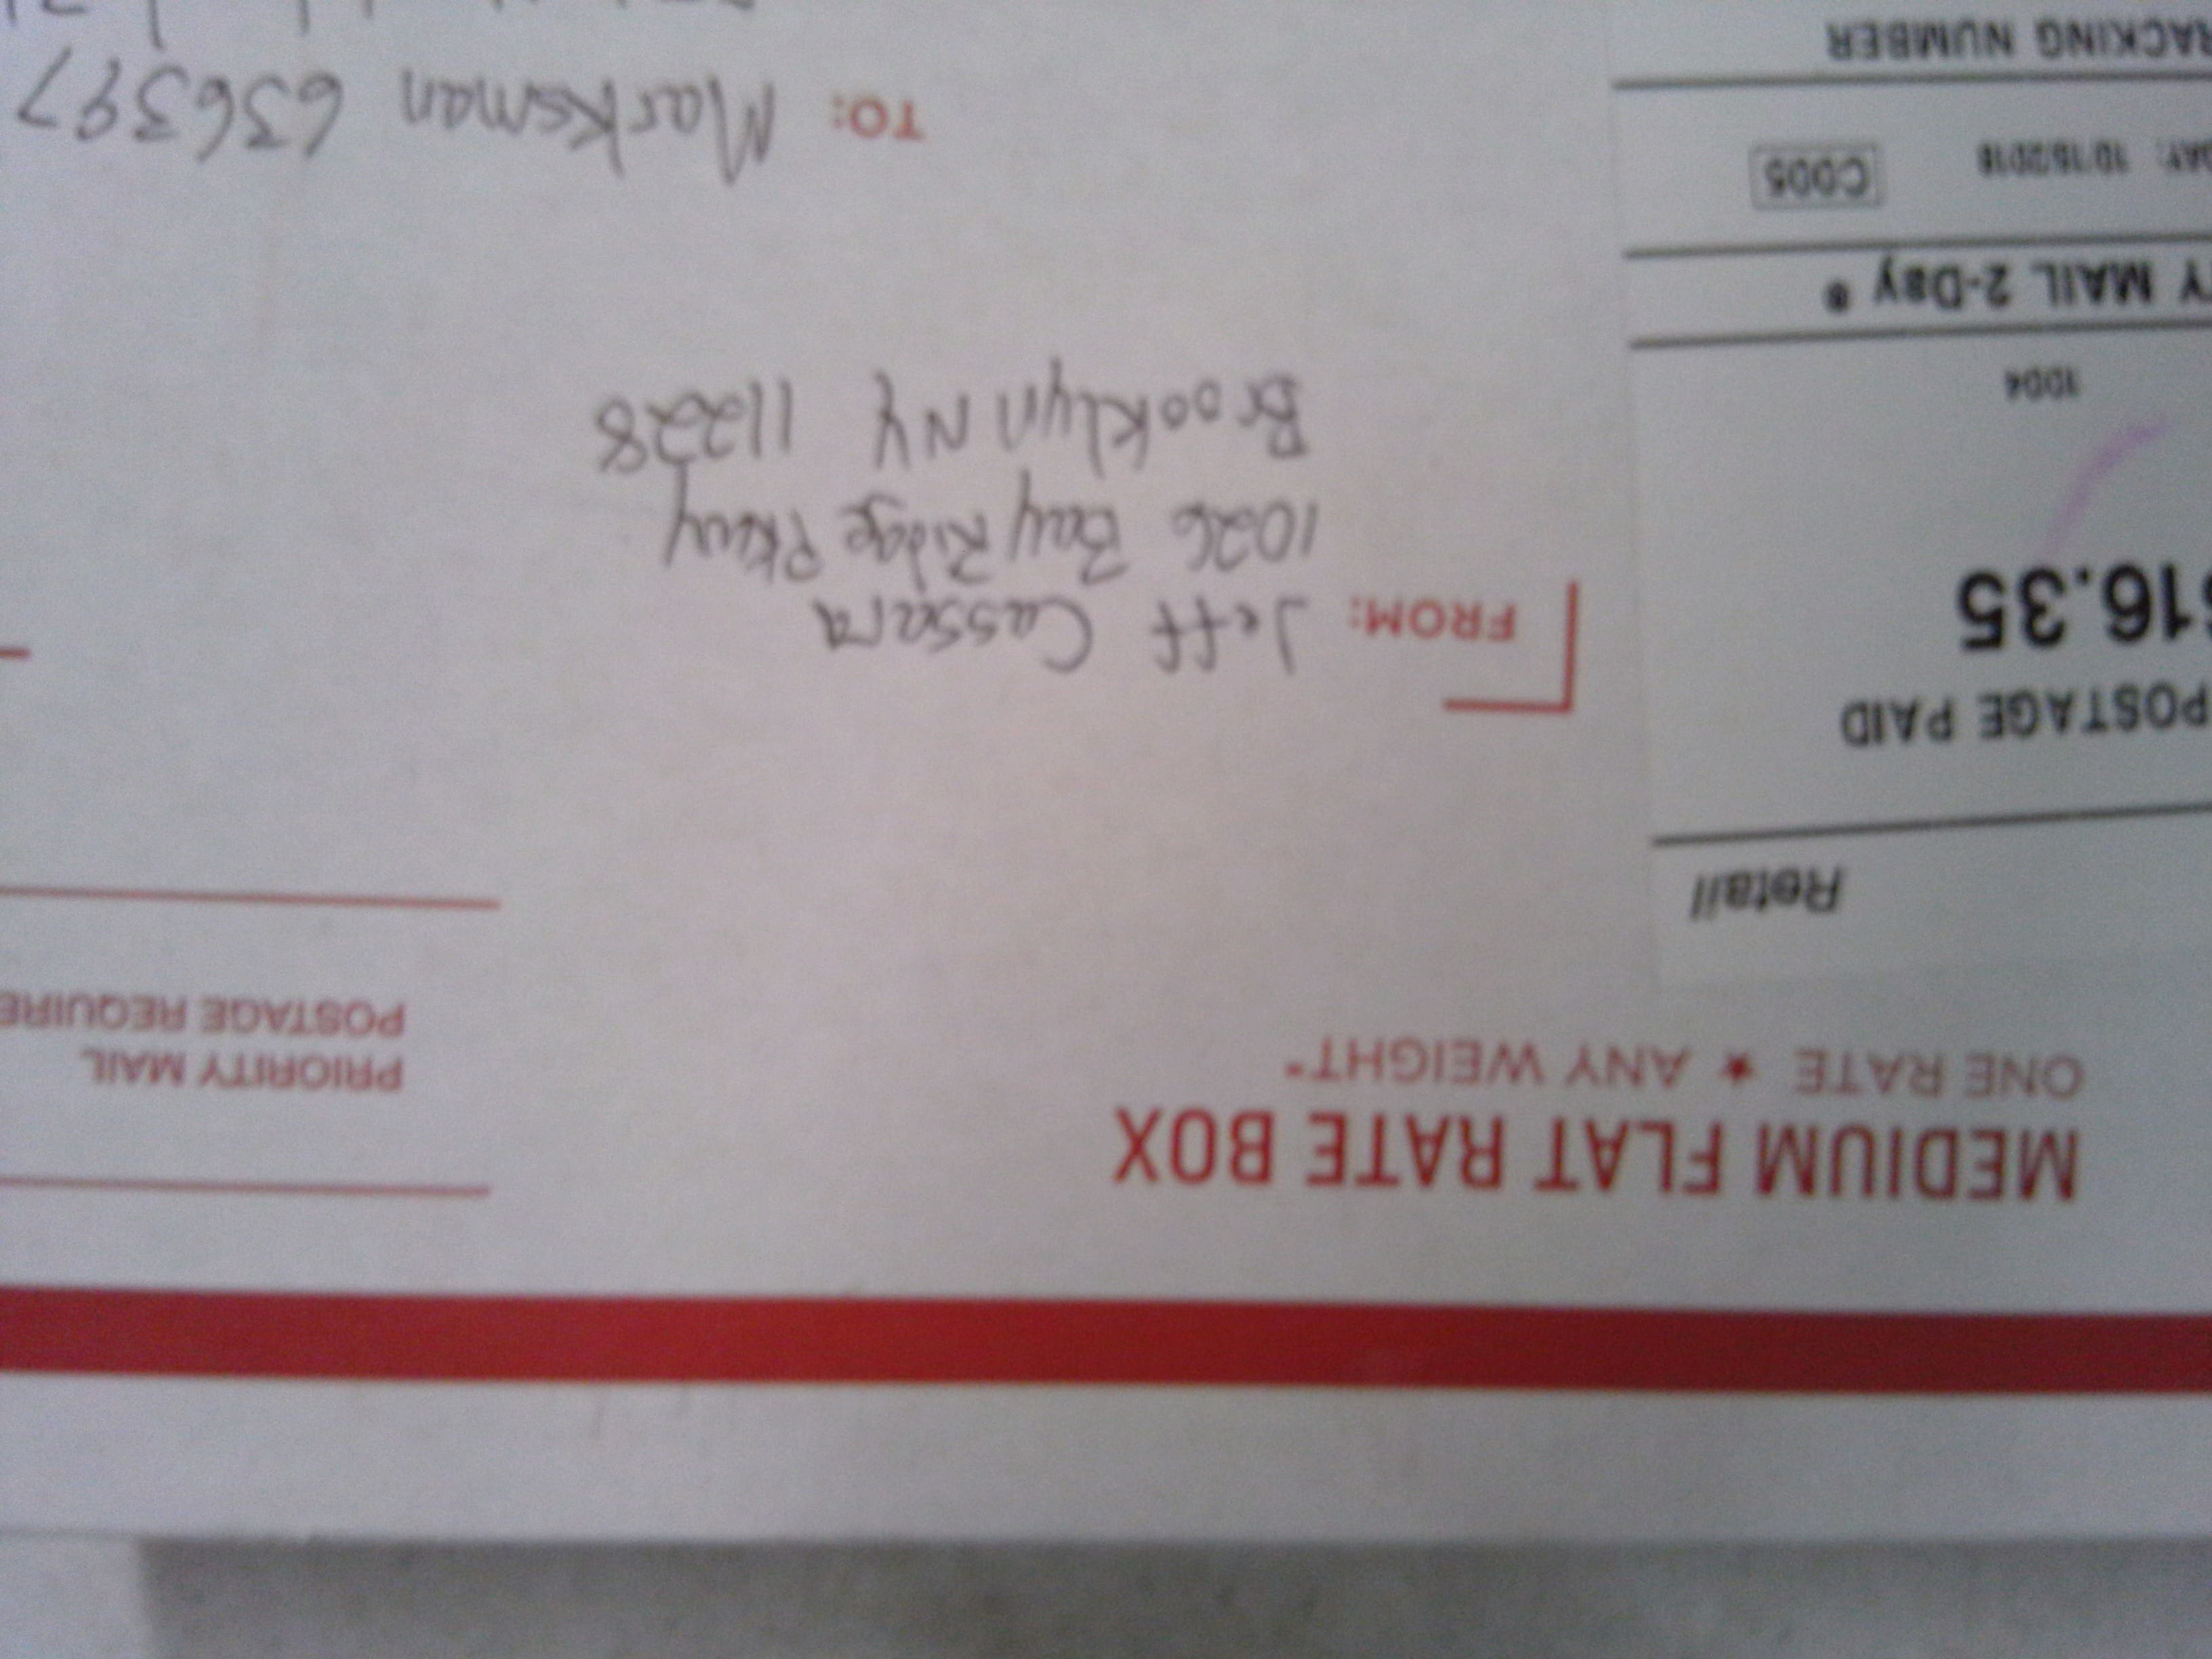 MEDIUM FLAT RATE BOX
ONE RATE ★ ANY WEIGHT*
PRIORITY MAIL
POSTAGE REQUIRE
Retail
POSTAGE PAID
$16.35
1004
Y MAIL 2-Day ®
DAY: 10/15/2018
C005
RACKING NUMBER
FROM: Jeff Cassara
1026 Bay Ridge Pkwy
Brooklyn NY 11228
TO: Marksman 636397